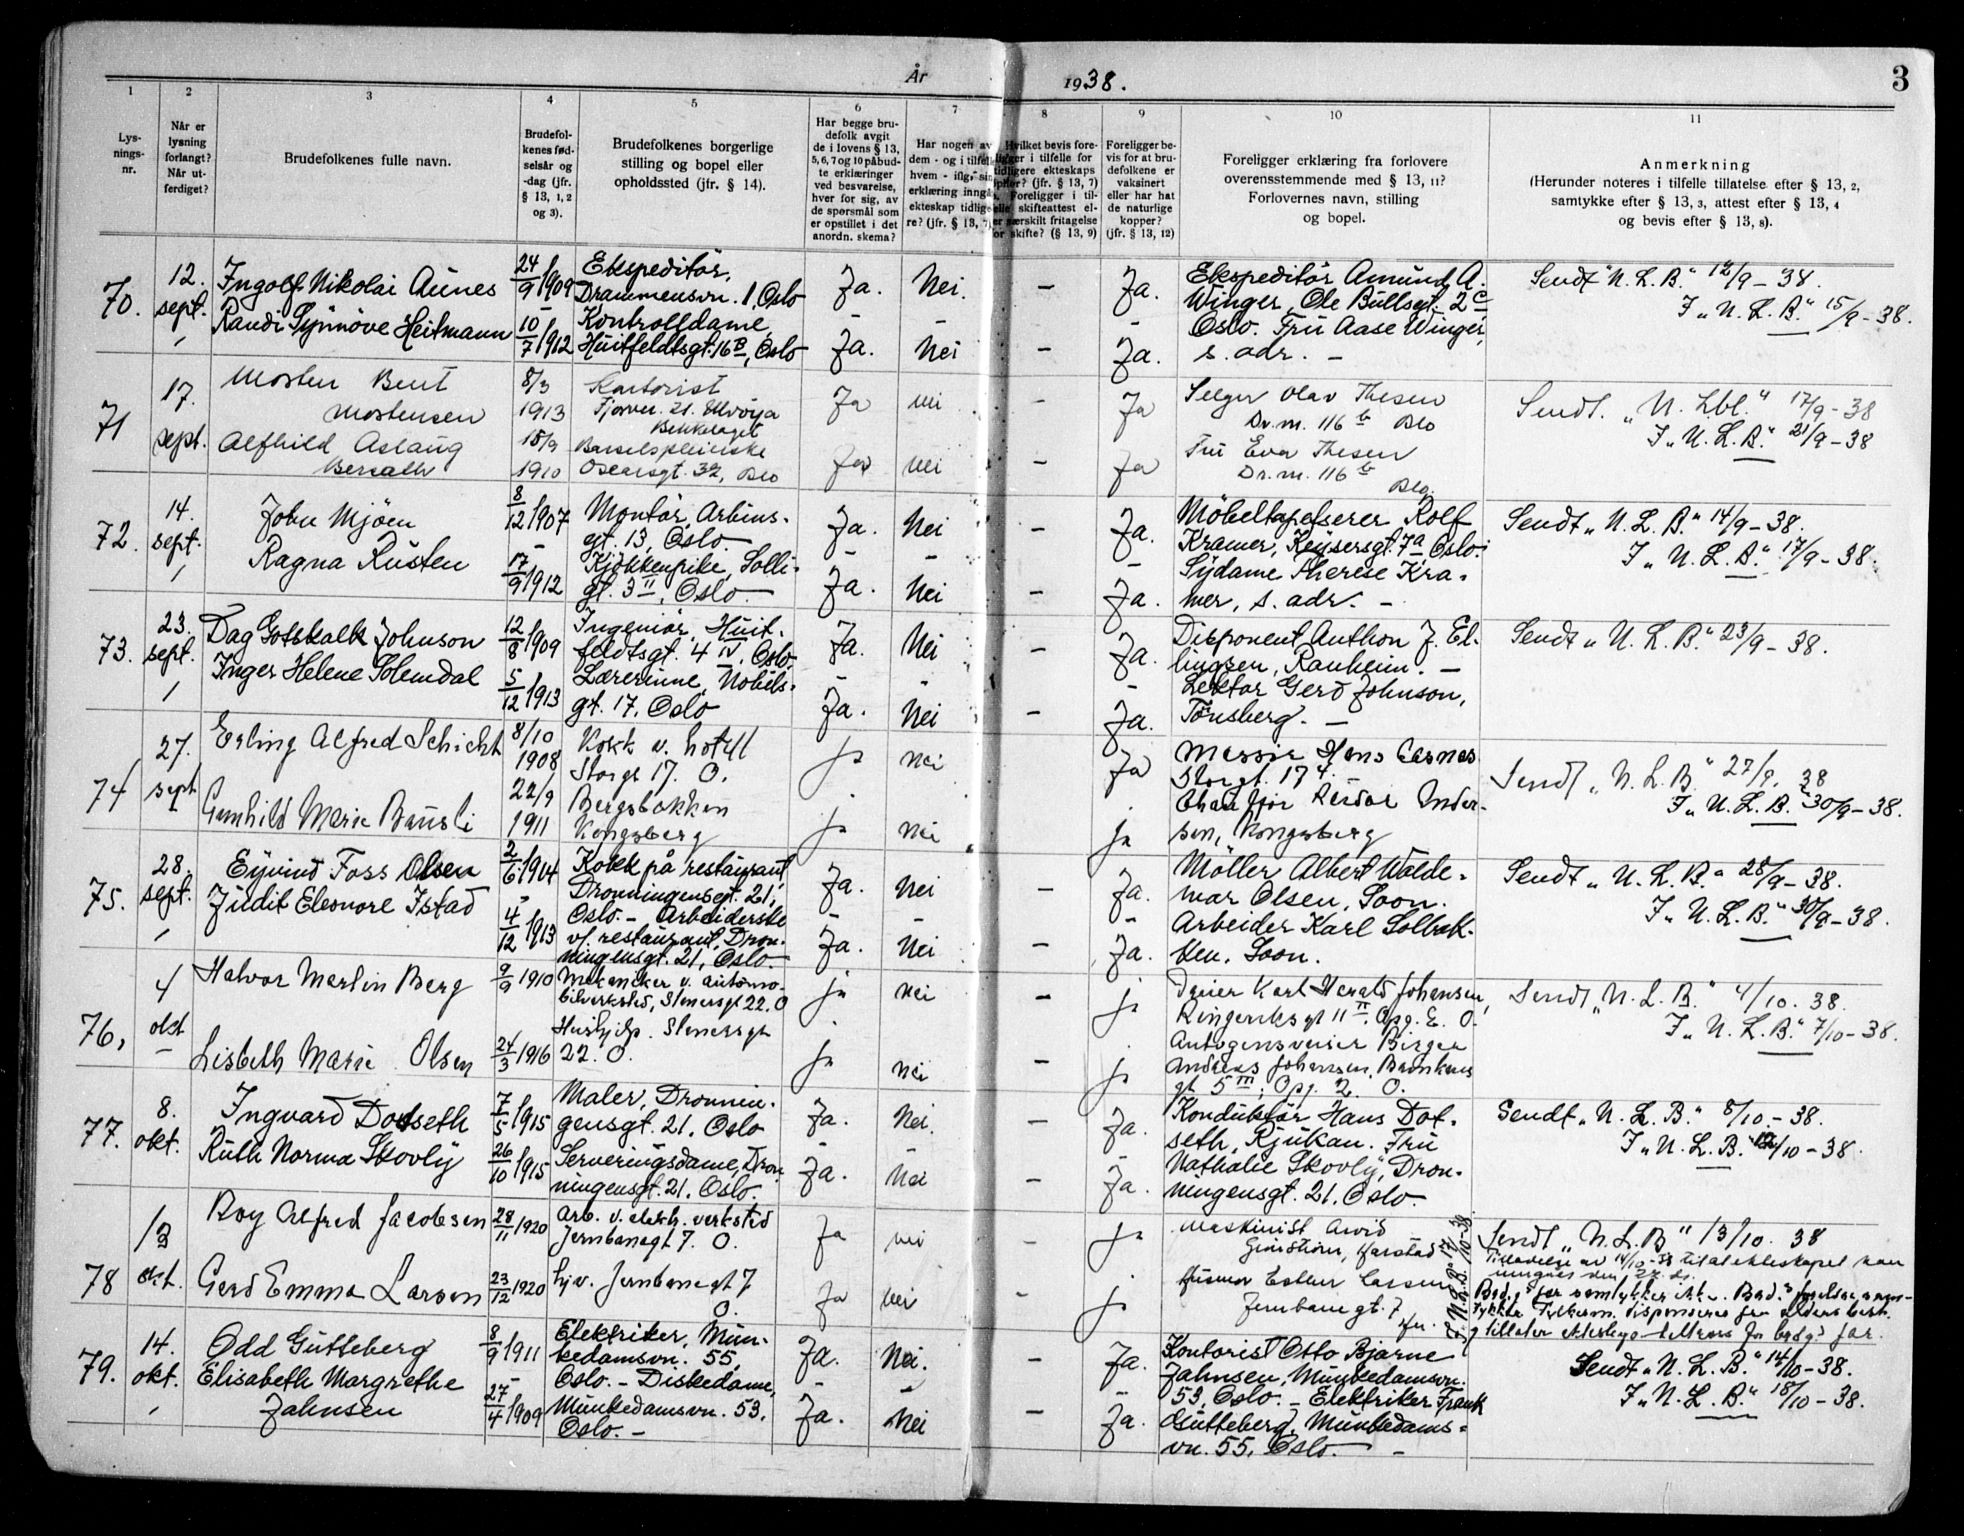 År 1938.
3
1 2 3 4 5 6 7 8 9 10 11
Lys-
nings-
nr.
Når er
lysning
forlangt?
Når ut-
ferdiget?
Brudefolkenes fulle navn.
Brudefol-
kenes fød-
selsår og
-dag (jfr.
§ 13, 1, 2
og 3).
Brudefolkenes borgerlige
stilling og bopel eller
opholdssted (jfr. § 14).
Har begge bru-
defolk avgit
de i lovens § 13,
5, 6, 7 og 10 påbud-
te erklæringer
ved besvarelse,
hver for sig, av
de spørsmål som
er opstillet i det
anordn. skema?
Har nogen av
dem - og i tilfelle
hvem - iflg. sin
erklæring inngåt
ekteskap tidlige-
re? (jfr. § 13, 7)
Hvilket bevis fore-
ligger i tilfelle for
tidligere ekteskaps
ophør? (jfr. § 13, 7)
Foreligger i til-
felle skifteattest el-
ler særskilt fritagelse
for skifte? (§ 13, 9)
Foreligger be-
vis for at bru-
defolkene er
vaksinert
eller har hat
de naturlige
kopper?
(jfr. § 13, 12)
Foreligger erklæring fra forlovere
overensstemmende med § 13, 11?
Forlovernes navn, stilling
og bopel.
Anmerkning
(Herunder noteres i tilfelle tillatelse efter § 13, 2,
samtykke efter § 13, 3, attest efter § 13, 4
og bevis efter § 13, 8).
70. 12. sept.
Ingolf Nikolai Aunes 24/9 1909 Ekspeditör,
Drammensvn. 1, Oslo Ja. Nei. - Ja.
Randi Synnöve Heitmann 10/7 1912 Kontrolldame,
Huitfeldtsgt. 16B, Oslo Ja. Nei - Ja.
Ekspeditör Amund A.
Winger, Ole Bullsgt. 2c
Oslo. Fru Aase Winger,
s. adr. -
Sendt "N. L. B." 12/9 - 38.
I "N. L. B." 15/9 - 38.
71 17. sept.
Morten Bent
Mortensen 8/3 1913 Kontorist
Ja nei - Ja
Alfhild Aslaug
15/9 1910
Oscarsgt. 32, Oslo Ja nei - Ja
Selger Olav Thesen
Dr.m. 116 b Oslo
Fru Eva Thesen
Dr.m. 116 b
Oslo.
Sendt. "N. Lbl." 17/9 - 38
I "N. L. B." 21/9 - 38
72. 14. sept.
John Mjöen 8/12 1907 Montör, Arbins-
gt. 13, Oslo. Ja. Nei - Ja.
Ragna Rusten 17/9 1912 Kjökkenpike, Solli-
gt. 3 II, Oslo. Ja. Nei - Ja.
Möbeltapetserer Rolf
Kramer, Keysersgt. 7a Oslo.
Sydame Therese Kra-
mer, s. adr. -
Sendt "N. L. B." 14/9 - 38.
I "N. L. B." 17/9 - 38.
73. 23. sept.
Dag Gotskalk Johnson 12/8 1909 Ingeniör, Huit-
feldtsgt. 4 IV, Oslo. Ja. Nei - Ja.
Inger Helene Solemdal 5/12 1913 Lærerinne, Nobels-
gt. 17, Oslo Ja. Nei - Ja.
Disponent Anthon J. El-
lingsen, Ranheim. -
Lektor Gerd Johnson,
Tönsberg. -
Sendt "N. L. B." 23/9 - 38.
74 27. sept
Erling Alfred Schicht 8/10 1908 Kokk v. hotell
Storgt 17. O. Ja nei Ja
Gunhild Marie 22/9 1911 Bergsbakken
Kongsberg Ja nei Ja
Hans
Storgt. 17 4.
Chauffør Reidar Ander-
sen, Kongsberg
Sendt "N. L. B." 27/9. 38
I "N. L. B." 30/9 - 38.
75. 28. sept.
Eyvind Foss Olsen 2/6 1904 Kokk på restaurant,
Dronningensgt. 21,
Oslo. - Ja. Nei - Ja.
Judit Eleonore Istad 4/12 1913 Arbeiderske
v/ restaurant, Dron-
ningensgt. 21, Oslo. Ja. Nei - Ja.
Möller Albert Walde-
mar Olsen, Soon.
Arbeider Karl Solbak-
ken, Soon.
Sendt "N. L. B." 28/9 - 38.
I "N. L. B." 30/9 - 38.
76, 4 okt
Halvor Martin Berg 9/9 1910 Mekaniker v. automo-
bilverksted, Stenersgt 22. O Ja nei - Ja
Lisbeth Marie Olsen 24/3 1916 Hushjelp. Stenersgt
22. O. Ja nei - Ja
Karl Harald Johansen,
Ringeriksgt 11 II. Opg. E. O.
Birger
Andreas Johansen,
gt 5 III, Opg. 2. O.
Sendt "N. L. B." 4/10. 38.
I "N. L. B." 7/10 - 38.
77. 8. okt.
Ingvard Dotseth 7/5 1915 Maler, Dronnin-
gensgt. 21, Oslo Ja. Nei. - Ja.
Ruth Norma Skovly 26/10 1915 Serveringsdame, Dron-
ningensgt. 21, Oslo. Ja. Nei - Ja.
Konduktör Hans Dot-
seth, Rjukan. Fru
Nathalie Skovly, Dron-
ningensgt. 21, Oslo.
Sendt "N. L. B." 8/10 - 38.
I "N. L. B." 12/10 - 38.
78 13 okt.
Roy Alfred Jacobsen 28/11 1920 Arb. v. elektr. verksted
Jernbanegt 7. O. Ja nei Ja
Gerd Emma Larsen 23/12 1920 hjv. Jernbanegt 7
O. Ja nei Ja
Maskinist Arvid
Harstad
Husmor Esther Larsen
Jernbanegt. 7
Sendt "N. L. B" 13/10. 38
I "N. L. B." 17/10 - 38.
79. 14. okt.
Odd Gutteberg 8/9 1911 Elektriker, Mun-
kedamsvn. 55,
Oslo. - Ja. Nei. - Ja.
Elisabeth Margrethe
Jahnsen 27/4 1909 Diskedame,
Munkedamsvn. 53,
Oslo. - Ja. Nei - Ja.
Kontorist Otto Bjarne
Jahnsen, Munkedamsvn.
53, Oslo. - Elektriker Frank
Gutteberg, Munkedams-
vn. 55, Oslo. -
Sendt "N. L. B." 14/10 - 38.
I "N. L. B." 18/10 - 38.